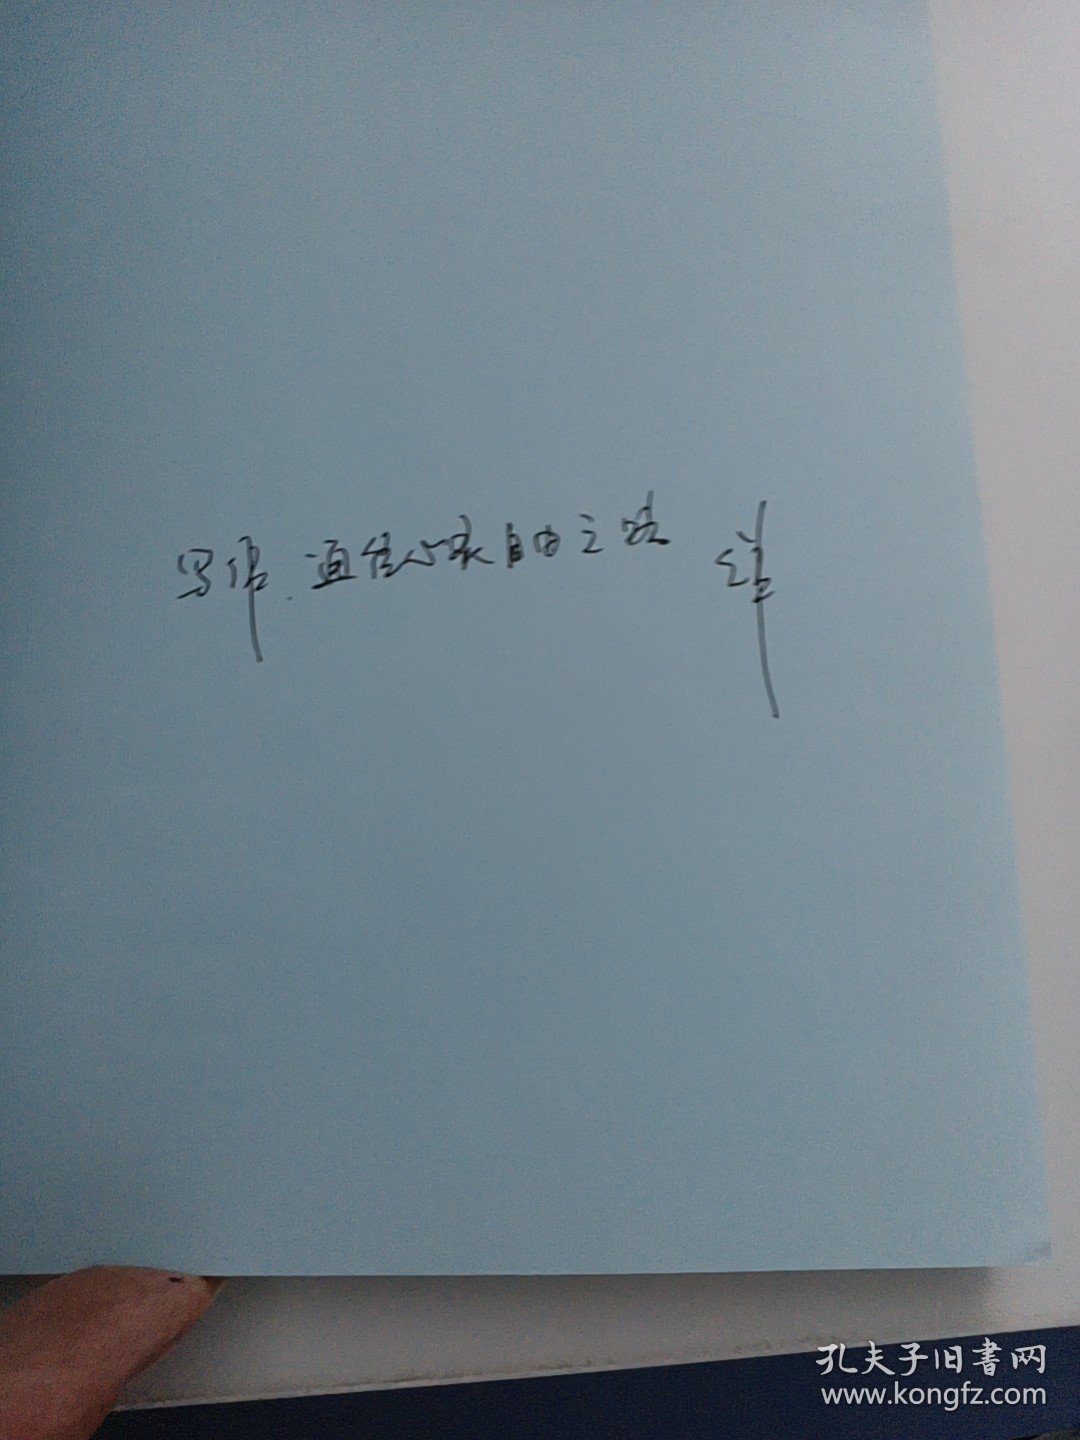 写作.通往心灵自由之路
孔夫子旧書网
www.kongfz.com